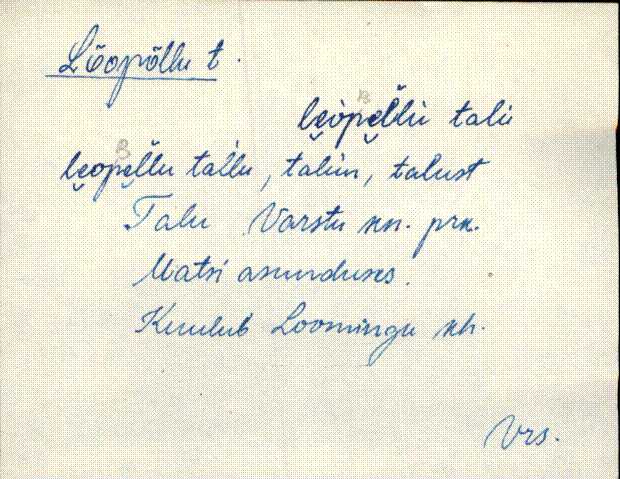 Lõopõllu t.
l̮e̮òpe̮l̆l̆ù talù
le̮ope̮l̆l̆u tal̀lu, talun, talust
Talu Varstu kn. prk.
Matsi asunduses.
Kuulub Loomingu kh.
Vrs.